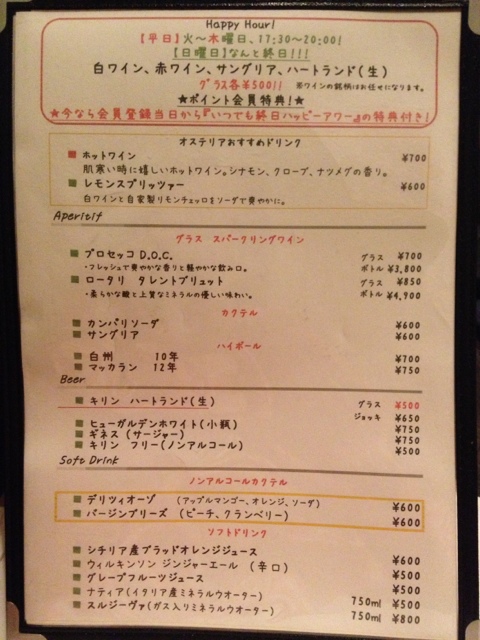 Happy Hour!
【平日】火～木曜日、17:30～20:00!
【日曜日】なんと終日!!!
白ワイン、赤ワイン、サングリア、ハートランド(生)
グラス各¥500!! ※ワインの銘柄はお任せになります。
★ポイント会員特典!★
★今なら会員登録当日から『いつでも終日ハッピーアワー』の特典付き!
オステリアおすすめドリンク
ホットワイン ¥700
肌寒い時に嬉しいホットワイン。シナモン、クローブ、ナツメグの香り。
レモンスプリッツァー ¥600
白ワインと自家製リモンチェッロをソーダで爽やかに。
Aperitif
グラス スパークリングワイン
プロセッコ D.O.C. グラス ¥700
・フレッシュで爽やかな香りと軽やかな飲み口。 ボトル ¥3,800
ロータリ タレントブリュット グラス ¥850
・柔らかな酸と上質なミネラルの優しい味わい。 ボトル ¥4,900
カクテル
カンパリソーダ ¥600
サングリア ¥600
ハイボール
白州 10年 ¥700
マッカラン 12年 ¥750
Beer
キリン ハートランド(生) グラス ¥500
ジョッキ ¥650
ヒューガルデンホワイト(小瓶) ¥750
ギネス (サージャー) ¥750
キリン フリー(ノンアルコール) ¥500
Soft Drink
ノンアルコールカクテル
デリツィオーゾ (アップルマンゴー、オレンジ、ソーダ) ¥600
バージンブリーズ (ピーチ、クランベリー) ¥600
ソフトドリンク
シチリア産ブラッドオレンジジュース ¥600
ウィルキンソン ジンジャーエール (辛口) ¥500
グレープフルーツジュース ¥500
ナティア(イタリア産ミネラルウオーター) 750ml ¥500
スルジーヴァ(ガス入りミネラルウオーター) 750ml ¥800